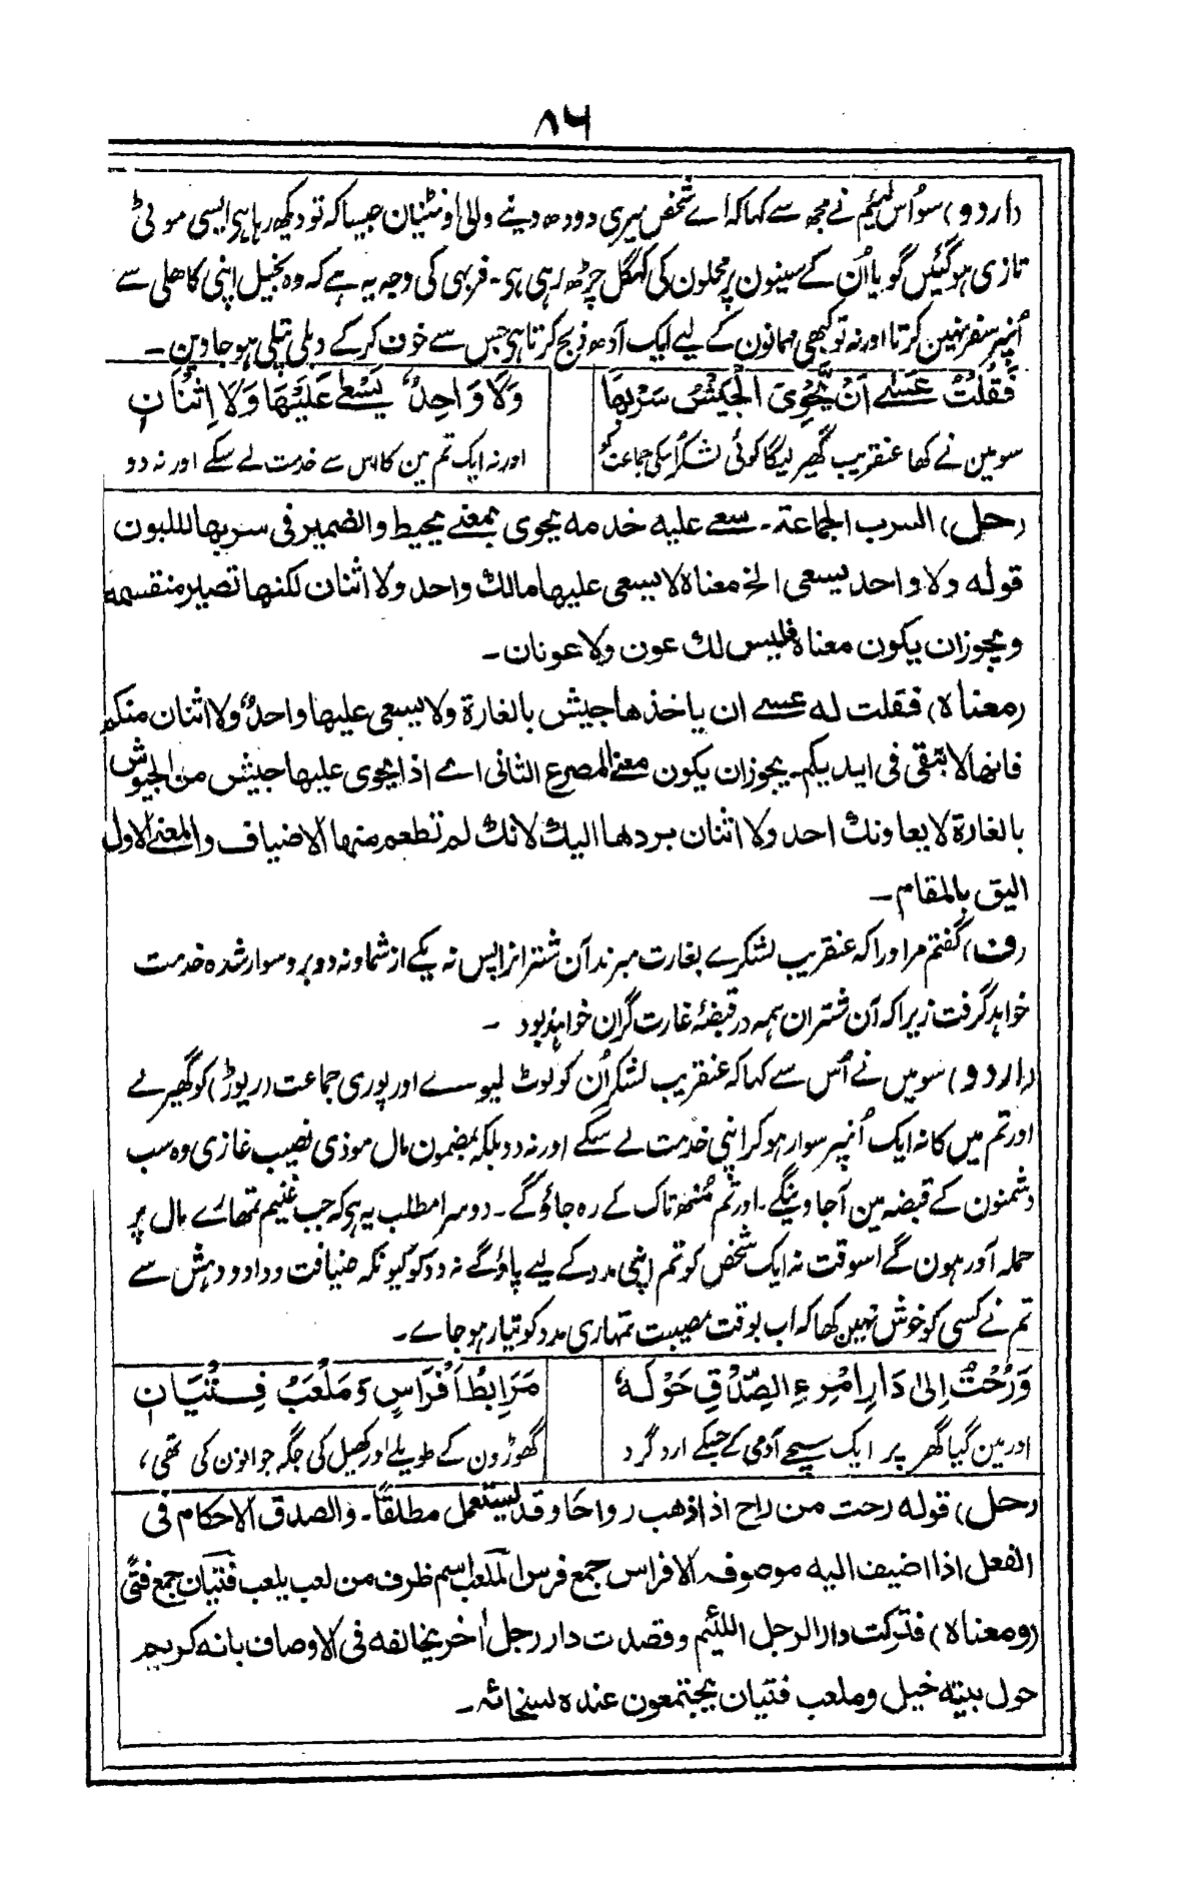 ۸۶
(اردو) سو اُس لئیم نے مجھ سے کہا کہ اے شخص میری دودھ دینے والی اونٹنیان جیسا کہ تو دیکھ رہا ہی ایسی موٹی
تازی ہو گئیں گویا اُن کے سینون پر محلون کی کہگل چڑھ رہی ہی۔ فربہی کی وجہ یہ ہے کہ وہ بخیل اپنی کاھلی سے
اُنپر سفر نہین کرتا اور نہ تو کبھی مہمانون کے لیے ایک آدھ ذبح کرتا ہی جس سے خون کر کے دبلی پتلی ہو جاوین۔
فَقُلْتُ عَسٰے اَنْ یَّحْوِیَ الْجَیْشُ سَرْبَھَا وَلَا وَاحِدٌ یَسْعٰے عَلَیْھَا وَلَا اِثْنَانِ
سو مین نے کھا عنقریب گھیر لیگا کوئی لشکر اُسکی جماعت کو اور نہ ایک تم مین کا اس سے خدمت لے سکے اور نہ دو
(حل) السرب الجماعۃ۔ سعے علیہ خدمہ یحوی بمعنے یحیط والضمیر فی سربھا لللبون
قولہ ولا واحد یسعی الخ معناہ لا یسعی علیھا مالک واحد ولا اثنان لکنھا تصیر منقسمہ
ویجوز ان یکون معناہ فلیس لک عون ولا عونان۔
(معناہ) فقلت لہ عسے ان یاخذھا جیش بالغارۃ ولا یسعی علیھا واحدٌ ولا اثنان منکم
فانھا لا تبقی فی ایدیکم۔ یجوز ان یکون معنے المصرع الثانی اے اذا یحوی علیھا جیش من الجیوش
بالغارۃ لا یعاونک احد ولا اثنان بردھا الیک لانک لم تطعم منھا الاضیاف والمعنے الاول
الیق بالمقام۔
(ف) گفتم مر اورا کہ عنقریب لشکرے بغارت میبرند آن شتران را پس نہ یکے از شما و نہ دو برو سوار شدہ خدمت
خواہد گرفت زیرا کہ آن شتران ہمہ در قبضۂ غارت گران خواہند بود ۔
(اردو) سو میں نے اُس سے کہا کہ عنقریب لشکر اُن کو لوٹ لیوے اور پوری جماعت (ریوڑ) کو گھیر لے
اور تم میں کا نہ ایک اُنپر سوار ہو کر اپنی خدمت لے سکے اور نہ دو بلکہ بمضمون مال موذی نصیب غازی وہ سب
دشمنون کے قبضہ مین آ جاوینگے۔ اور تم مُنھ تاک کے رہ جاؤ گے۔ دوسرا مطلب یہ ہی کہ جب غنیم تمھارے مال پر
حملہ آور ہون گے اسوقت نہ ایک شخص کو تم اپنی مدد کے لیے پاؤ گے نہ دو کو کیونکہ ضیافت و داد و دہش سے
تم نے کسی کو خوش نہین کھا کہ اب بوقت مصیبت تمہاری مدد کو تیار ہو جاے۔
وَرُحْتُ اِلیٰ دَارِ امْرِءِ الصِّدْقِ حَوْلَہٗ مَرَابِطُ اَفْرَاسٍ وَمَلْعَبُ فِتْیَانِ
اور مین گیا گھر پر ایک سچے آدمی کے جسکے ارد گرد گھوڑون کے طویلے اور کھیل کی جگہ جوانون کی تھی،
(حل) قولہ رحت من راح اذا ذھب رواحا وقد یستعمل مطلقًا۔ والصدق الاحکام فی
الفعل اذا اضیف الیہ موصوفہ الافراس جمع فرس الملعب اسم ظرف من لعب یلعب فتیان جمع فتًی
(ومعناہ) فترکت دار الرجل اللئیم وقصدت دار رجل اٰخر یخالفہ فی الاوصاف بانہ کریم
حول بیتہ خیل وملعب فتیان یجتمعون عندہ لسخائہ۔